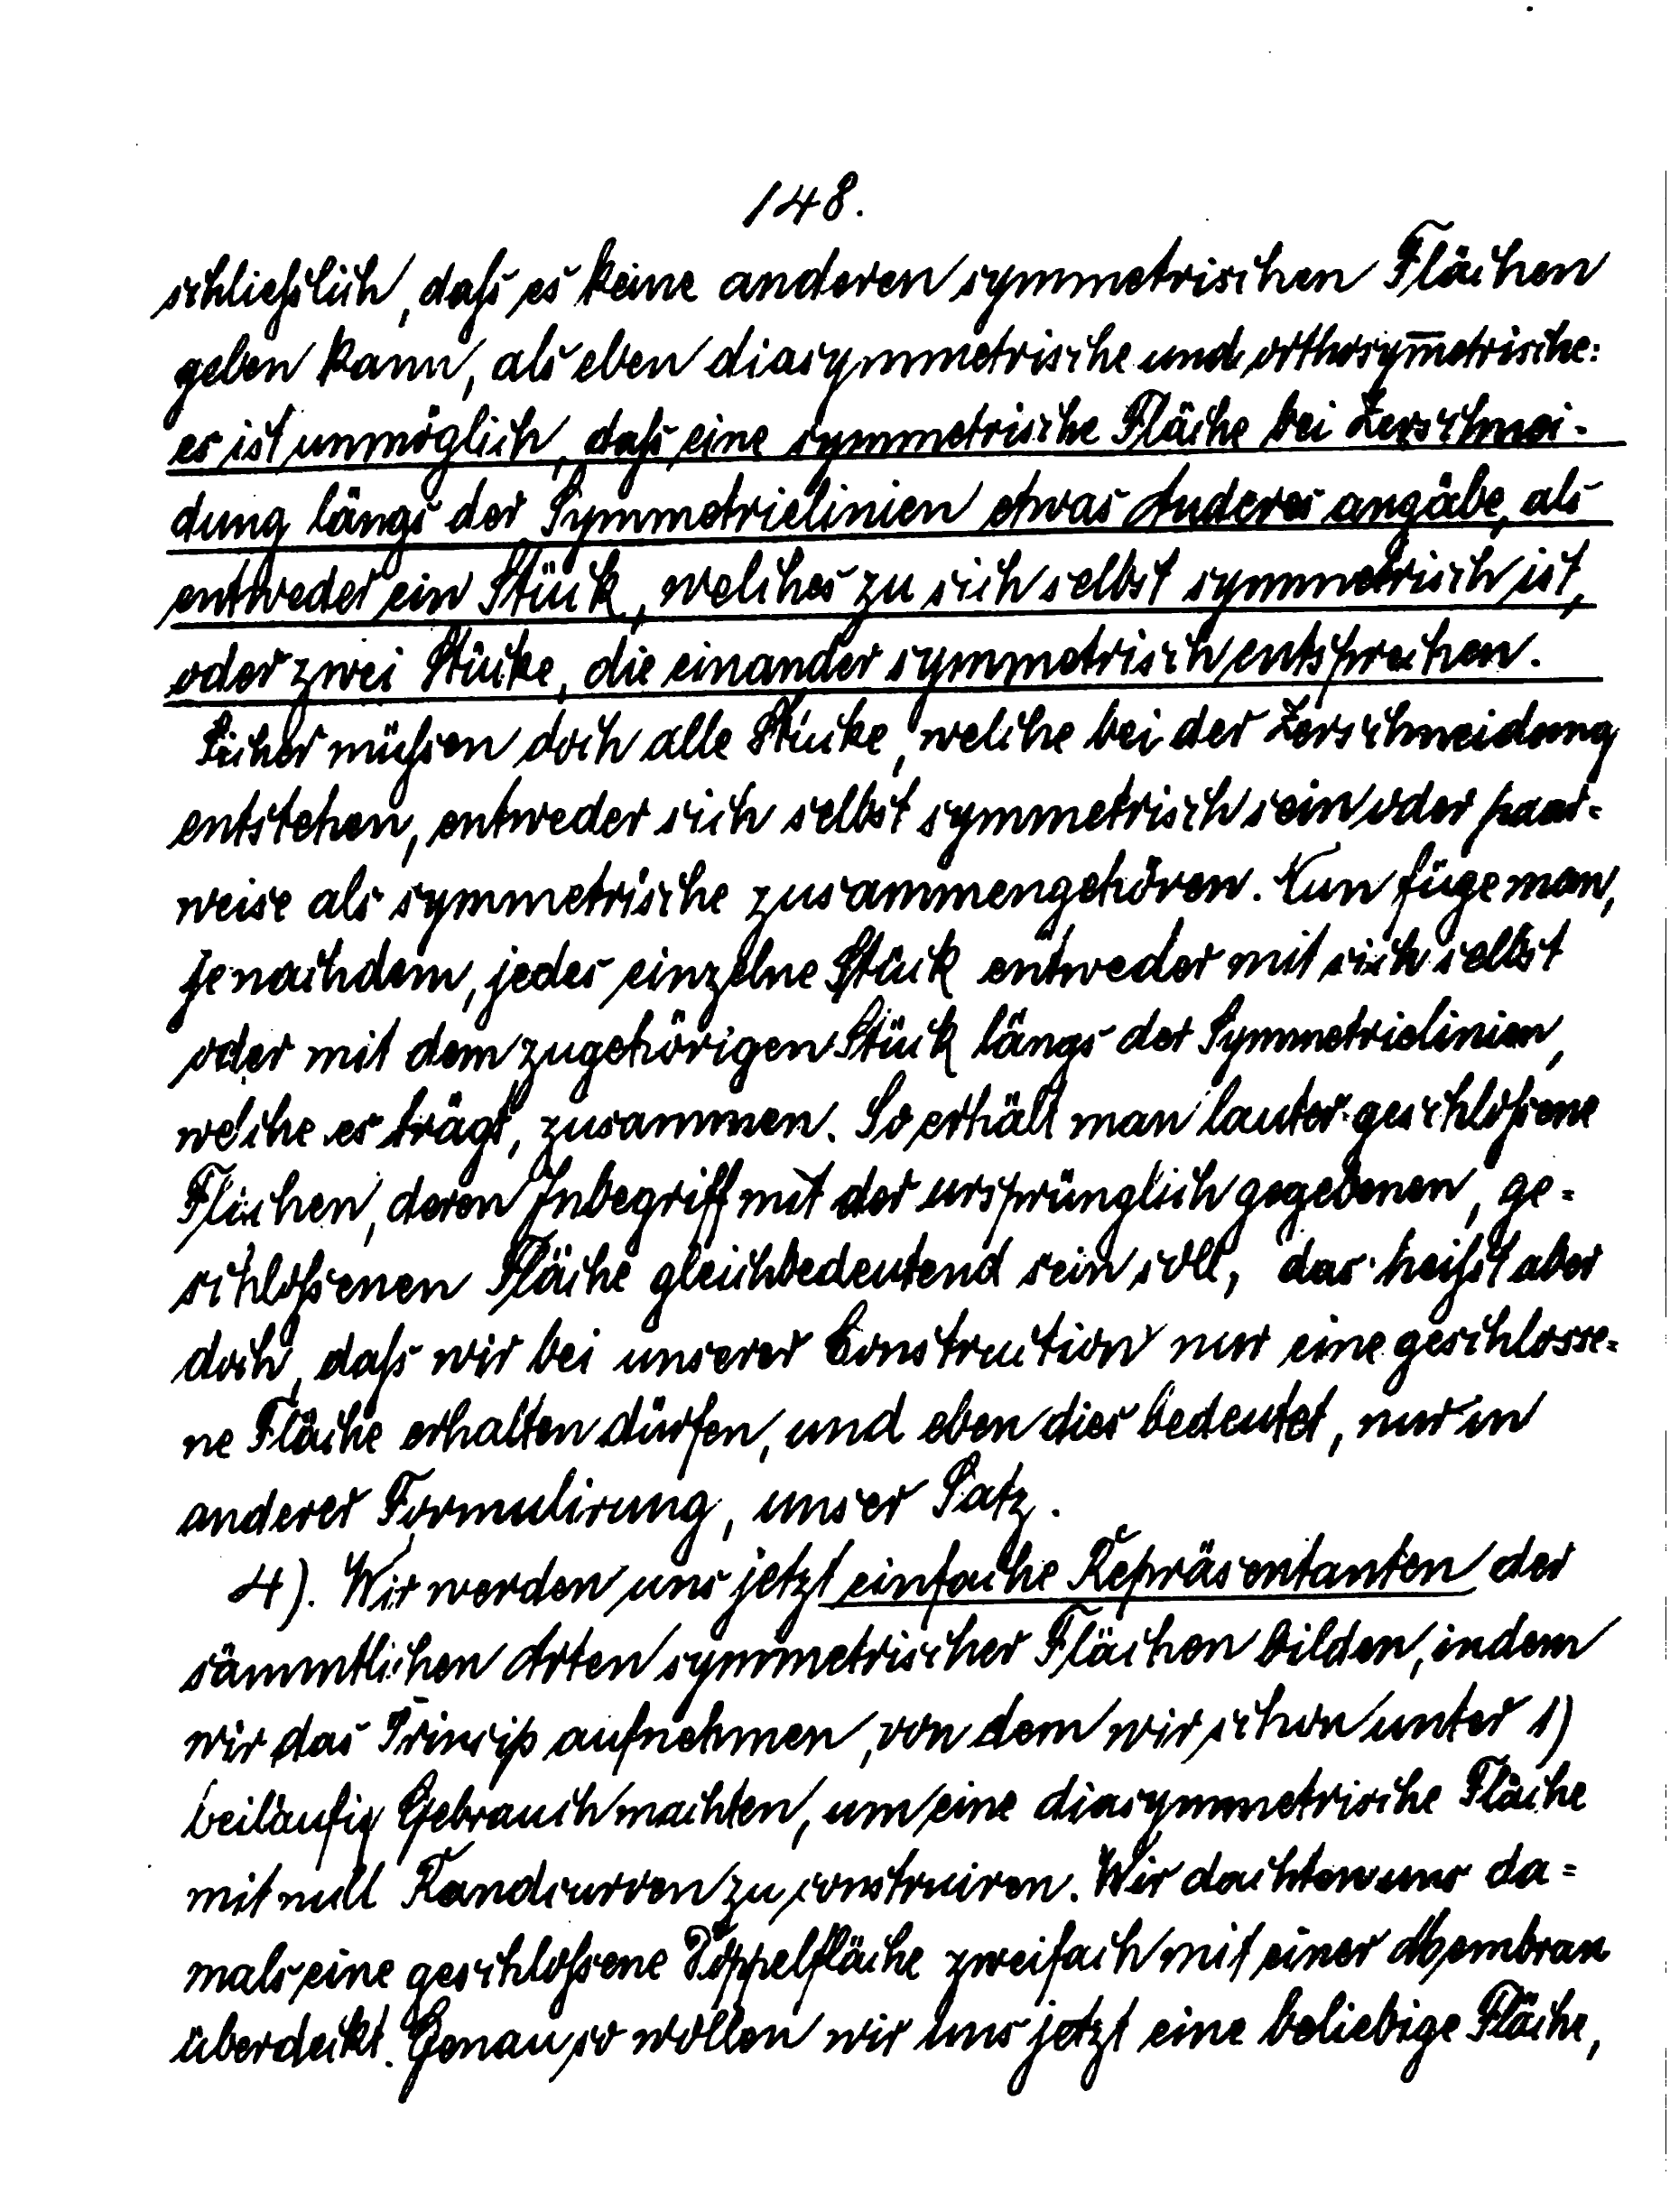 148.
schließlich, daß es keine anderen symmetrischen Flächen
geben kann, als eben diasymmetrische und orthosym̅etrische:
es ist unmöglich, daß eine symmetrische Fläche bei Zerschnei-
dung längs der Symmetrielinien etwas Anderes angäbe, als
entweder ein Stück, welches zu sich selbst symmetrisch ist,
oder zwei Stücke, die einander symmetrisch entsprechen.
Sicher müßen doch alle Stücke, welche bei der Zerschneidung
entstehen, entweder sich selbst symmetrisch sein oder paar-
weise als symmetrische zusammengehören. Nun füge man,
jenachdem, jedes einzelne Stück entweder mit sich selbst
oder mit dem zugehörigen Stück längs der Symmetrielinien,
welche es trägt, zusammen. So erhält man lauter geschloßene
Flächen, deren Inbegriff mit der ursprünglich gegebenen, ge-
schloßenen Fläche gleichbedeutend sein soll, das heißt aber
doch, daß wir bei unserer Construction nur eine geschlosse-
ne Fläche erhalten dürfen, und eben dies bedeutet, nur in
anderer Formulirung, unser Satz.
4). Wir werden uns jetzt einfache Repräsentanten der
sämmtlichen Arten symmetrischer Flächen bilden, indem
wir das Princip aufnehmen, von dem wir schon unter 1)
beiläufig Gebrauch machten, um eine diasymmetrische Fläche
mit null Randcurven zu construiren. Wir dachten uns da-
mals eine geschloßene Doppelfläche zweifach mit einer Membran
überdeckt. Genau so wollen wir uns jetzt eine beliebige Fläche,